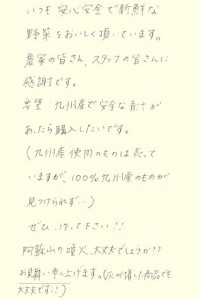 いつも安心安全で新鮮な
野菜をおいしく頂いています。
農家の皆さん、スタッフの皆さんに
感謝です。
希望：九州産で安全な青汁が
あったら購入したいです。
(九州産使用のものは売って
いますが、100％九州産のものが
見つけられず…)
ぜひ、作って下さい!!
阿蘇山の噴火、大丈夫でしょうか??
お見舞い申し上げます。(灰が付いた商品でも
大丈夫です!!)